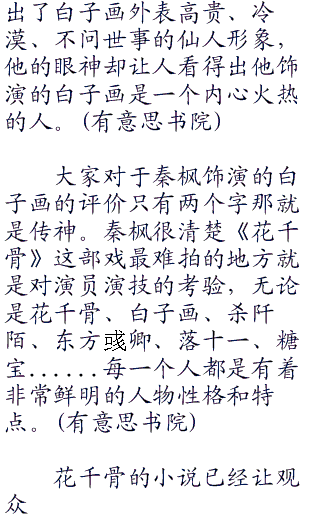 出了白子画外表高贵、冷
漠、不问世事的仙人形象，
他的眼神却让人看得出他饰
演的白子画是一个内心火热
的人。(有意思书院)
大家对于秦枫饰演的白
子画的评价只有两个字那就
是传神。秦枫很清楚《花千
骨》这部戏最难拍的地方就
是对演员演技的考验，无论
是花千骨、白子画、杀阡
陌、东方彧卿、落十一、糖
宝......每一个人都是有着
非常鲜明的人物性格和特
点。(有意思书院)
花千骨的小说已经让观
众